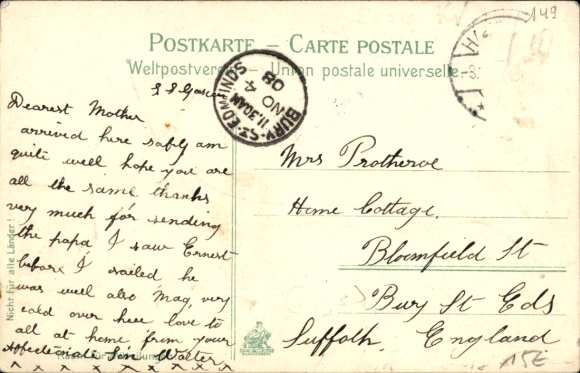 149
POSTKARTE – CARTE POSTALE
Weltpostverein – Union postale universelle
BURY-ST-EDMUNDS
11.30AM
NO 4
08
Dearest Mother
arrived here safly am
quite well hope you are
all the same thanks
very much for sending
the papa I saw Ernest
before I sailed he
was well also Mag, very
cold over here love to
all at home, from your
Affectionate Son Walter
Mrs Protheroe
Home Cottage.
Bloomfield St
Bury St Eds
Suffolk, England
Nicht für alle Länder!
15E